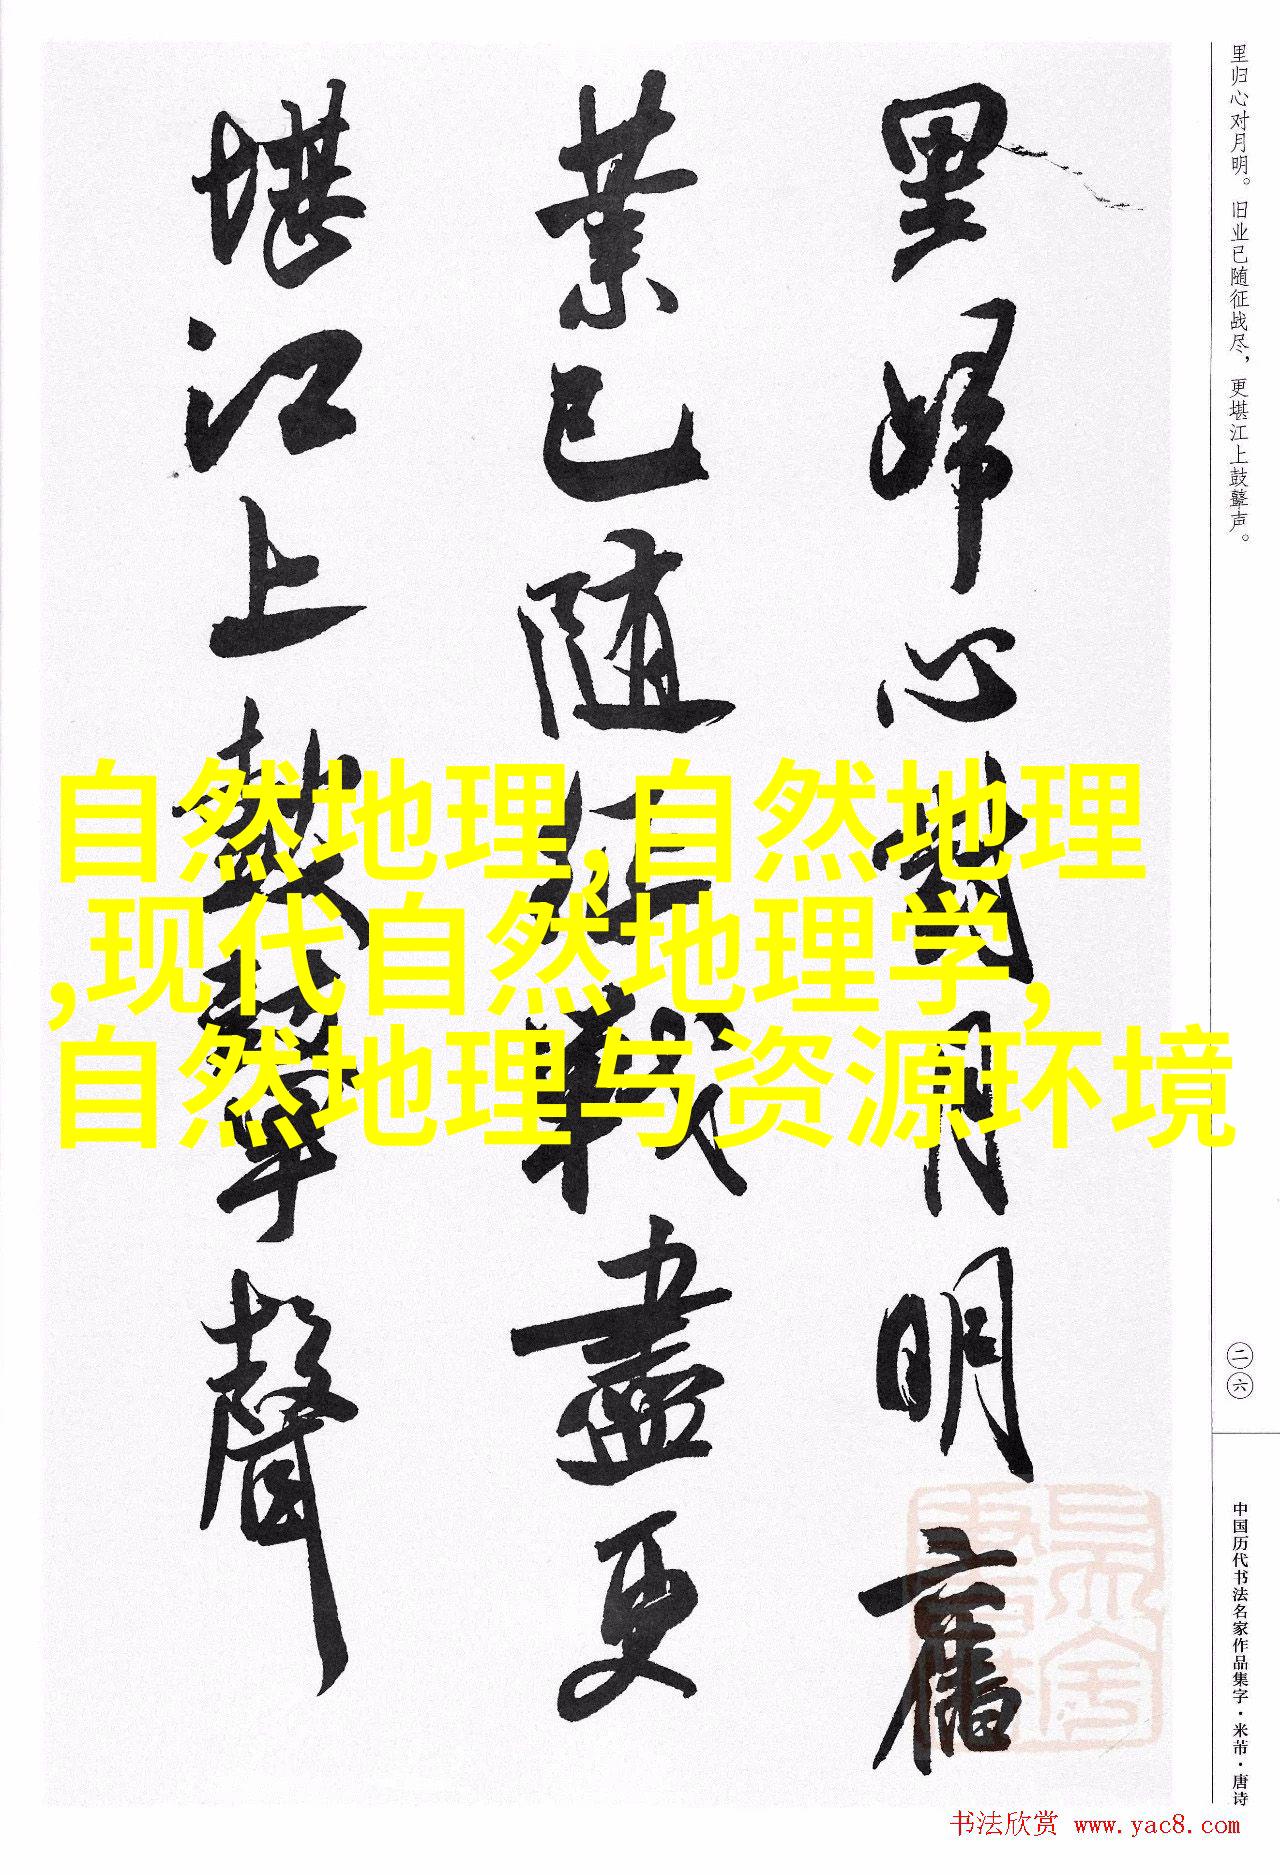 里归心对月明。旧业已随征战尽，更堪江上鼓鼙声。
里歸心對月明舊
業已隨征戰盡更
堪江上鼓鼙聲
自然地理,自然地理
,现代自然地理学,
自然地理与资源环境
二六
中国历代书法名家作品集字·米芾·唐诗
书法欣赏 www.yac8.com